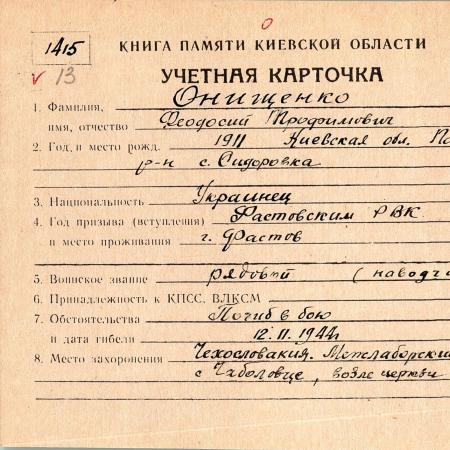 0
1415
КНИГА ПАМЯТИ КИЕВСКОЙ ОБЛАСТИ
v 13
УЧЕТНАЯ КАРТОЧКА
1. Фамилия, Онищенко
имя, отчество Феодосий Трофимович
2. Год и место рожд. 1911 Киевская обл.
р-н с. Сидоровка
3. Национальность Украинец
4. Год призыва (вступления) Фастовским РВК
и место проживания г. Фастов
5. Воинское звание рядовой (наводч
6. Принадлежность к КПСС, ВЛКСМ
7. Обстоятельства Погиб в бою
и дата гибели 12.11.1944г
8. Место захоронения Чехословакия. Межлаборский
с Чабаловце, возле церкви